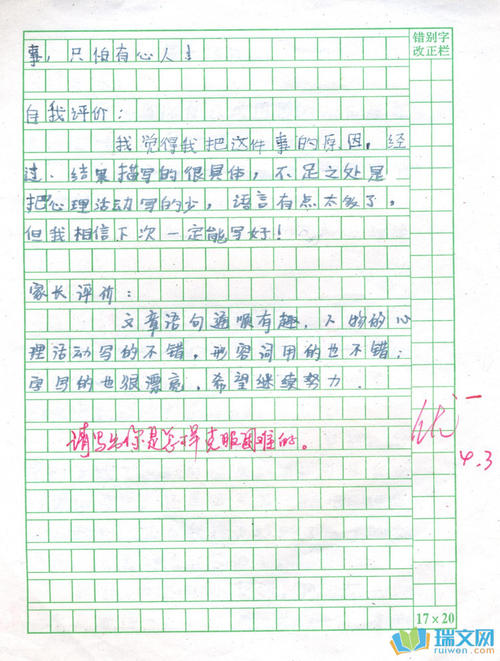 错别字
改正栏
事,只怕有心人!
自我评价:
我觉得我把这件事的原因,经
过、结果描写的很具体,不足之处是
把心理活动写的少,语言有点太多了,
但我相信下次一定能写好!
家长评价:
文章语句通顺有趣,人物的心
理活动写的不错,形容词用的也不错;
字写的也很漂亮,希望继续努力.
请写出你是怎样克服困难的。
优-
4.3
17×20
瑞文网
ruiwen.com